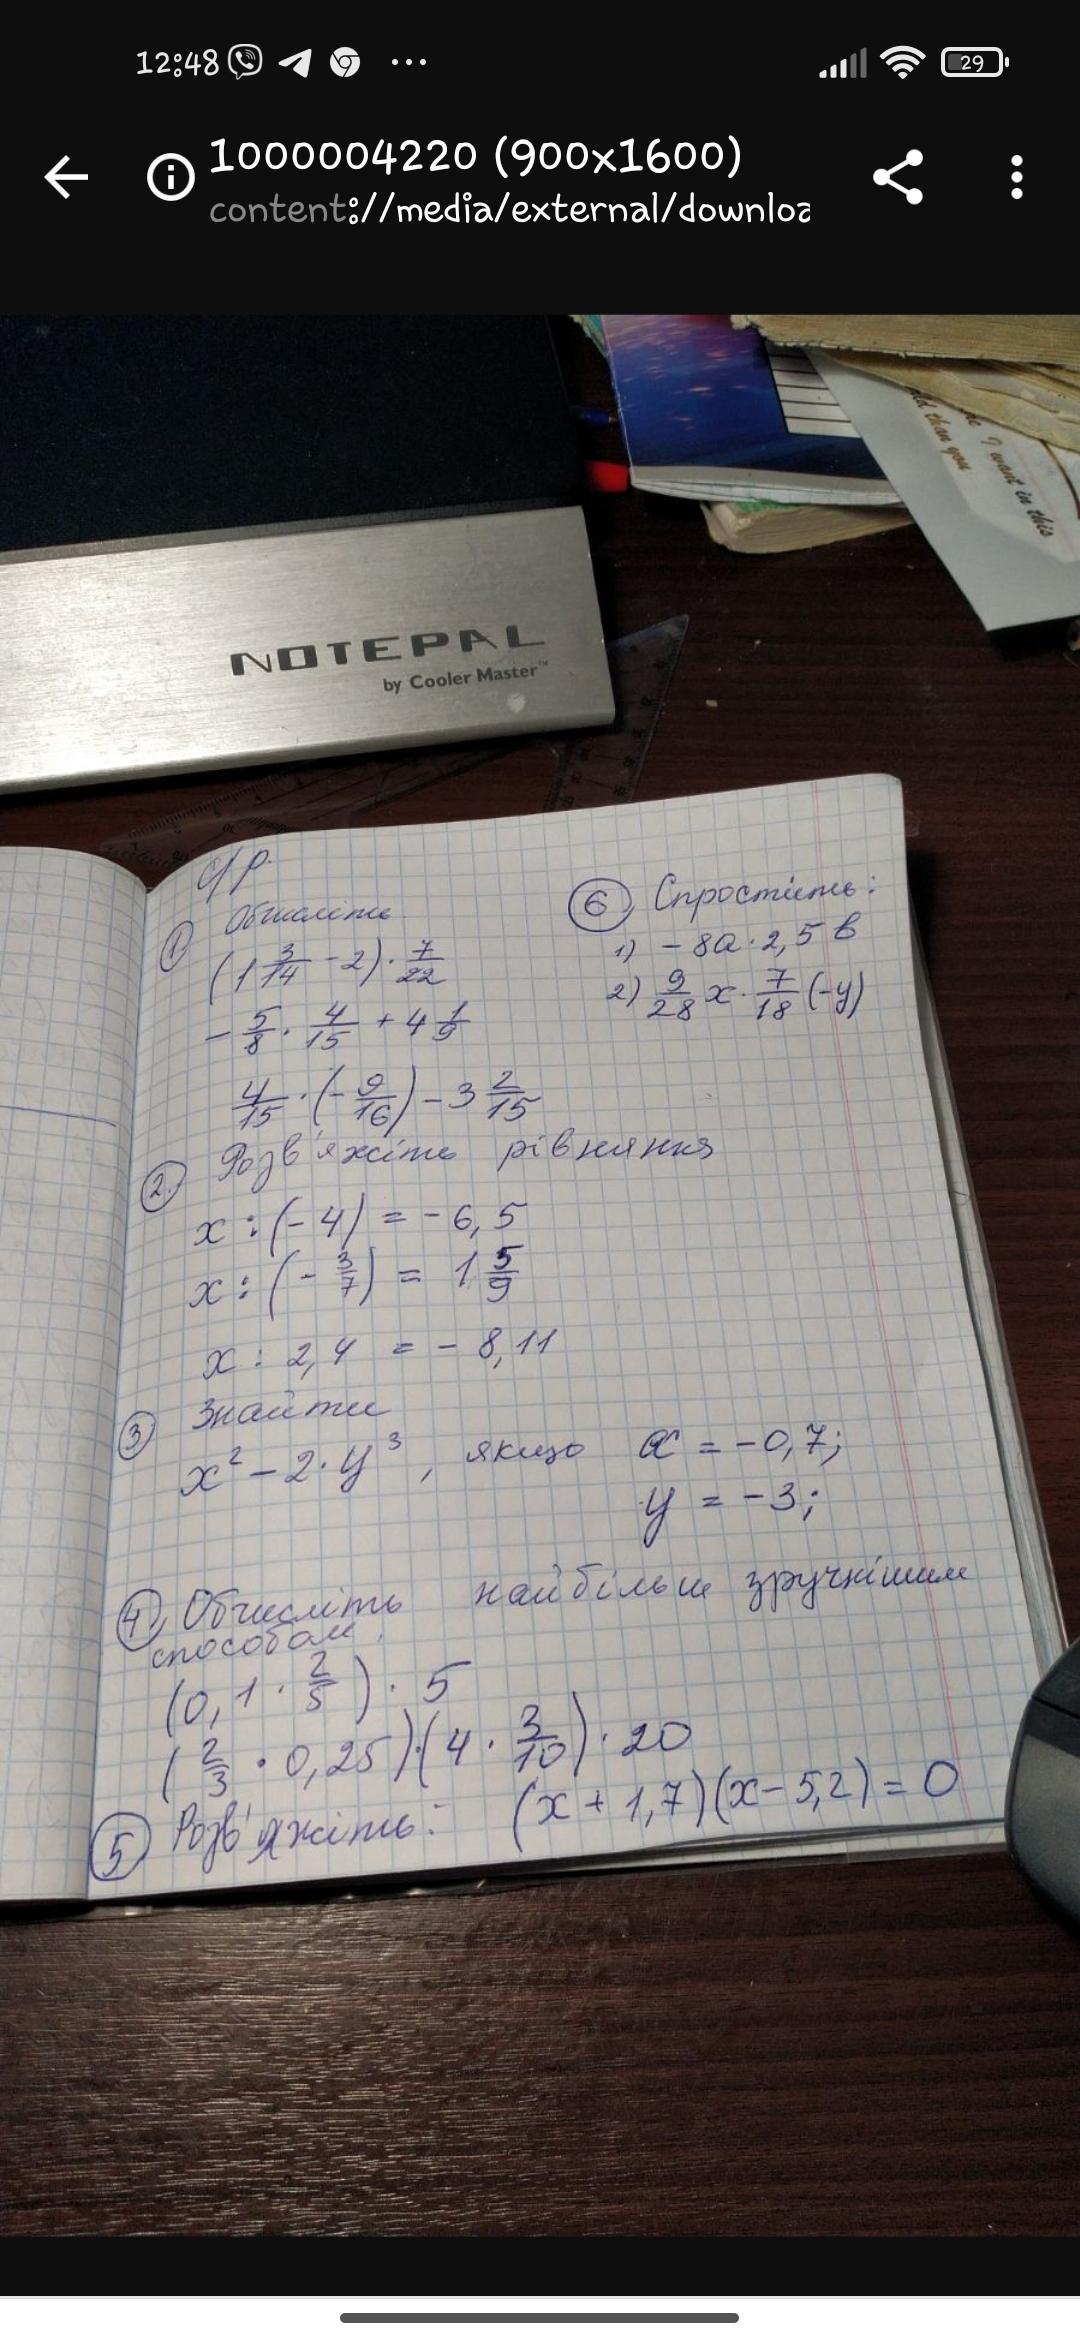 12:48 ... 29
1000004220 (900x1600)
content://media/external/downloa
he I want in this
old than you
NOTEPAL
by Cooler Master™
С/Р.
① Обчисліть
(1 3/14 - 2) · 7/22
- 5/8 · 4/15 + 4 1/9
4/15 · (- 9/16) - 3 2/15
② Розв'яжіть рівняння
x : (- 4) = - 6,5
x : (- 3/7) = 1 5/9
x : 2,4 = - 8,11
③ Знайти
x² - 2 · y³, якщо x = -0,7;
y = -3;
④, Обчисліть найбільш зручнішим
способом,
(0,1 · 2/5) · 5
(2/3 · 0,25)·(4 · 3/10) · 20
⑤ Розв'яжіть: (x + 1,7)(x - 5,2) = 0
⑥, Спростить:
1) - 8a · 2,5 b
2) 9/28 x · 7/18 (-y)